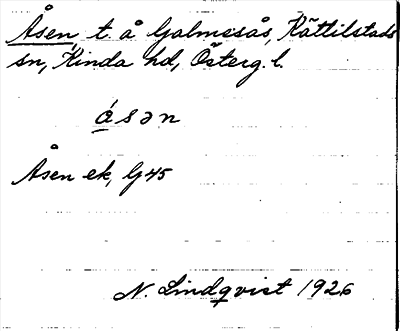 Åsen t. å Hjalmsås, Kättilstads
sn, Kinda hd, Österg. l.
åsən
Åsen ek, Gj 45
N. Lindqvist 1926